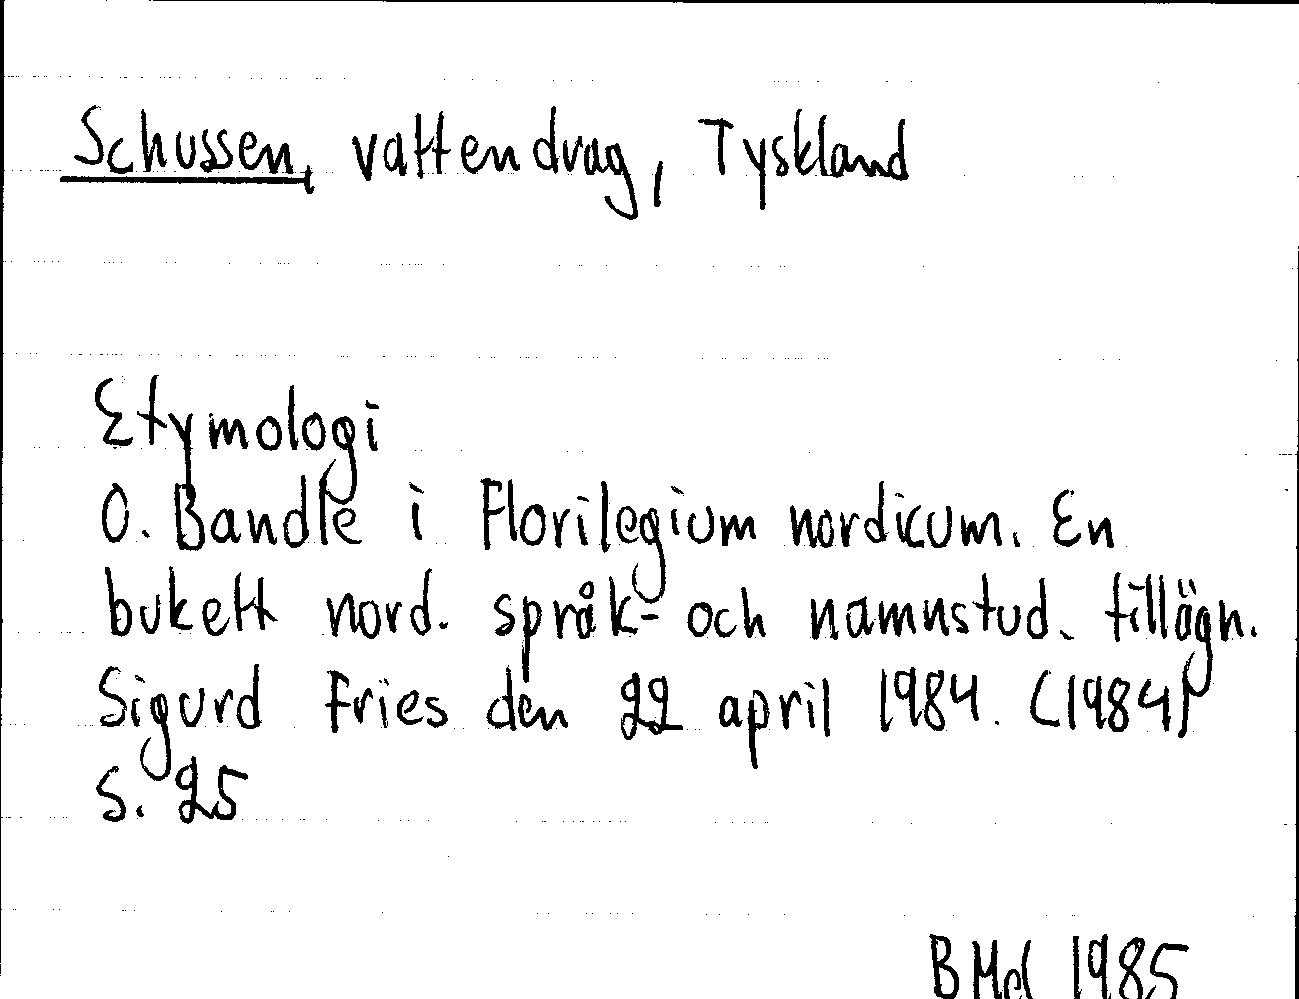 Schussen, vattendrag, Tyskland
Etymologi
O. Bandle i Florilegium nordicum. En
bukett nord. språk- och namnstud. tillägn.
Sigurd Fries den 22 april 1984. (1984)
s. 25
1985